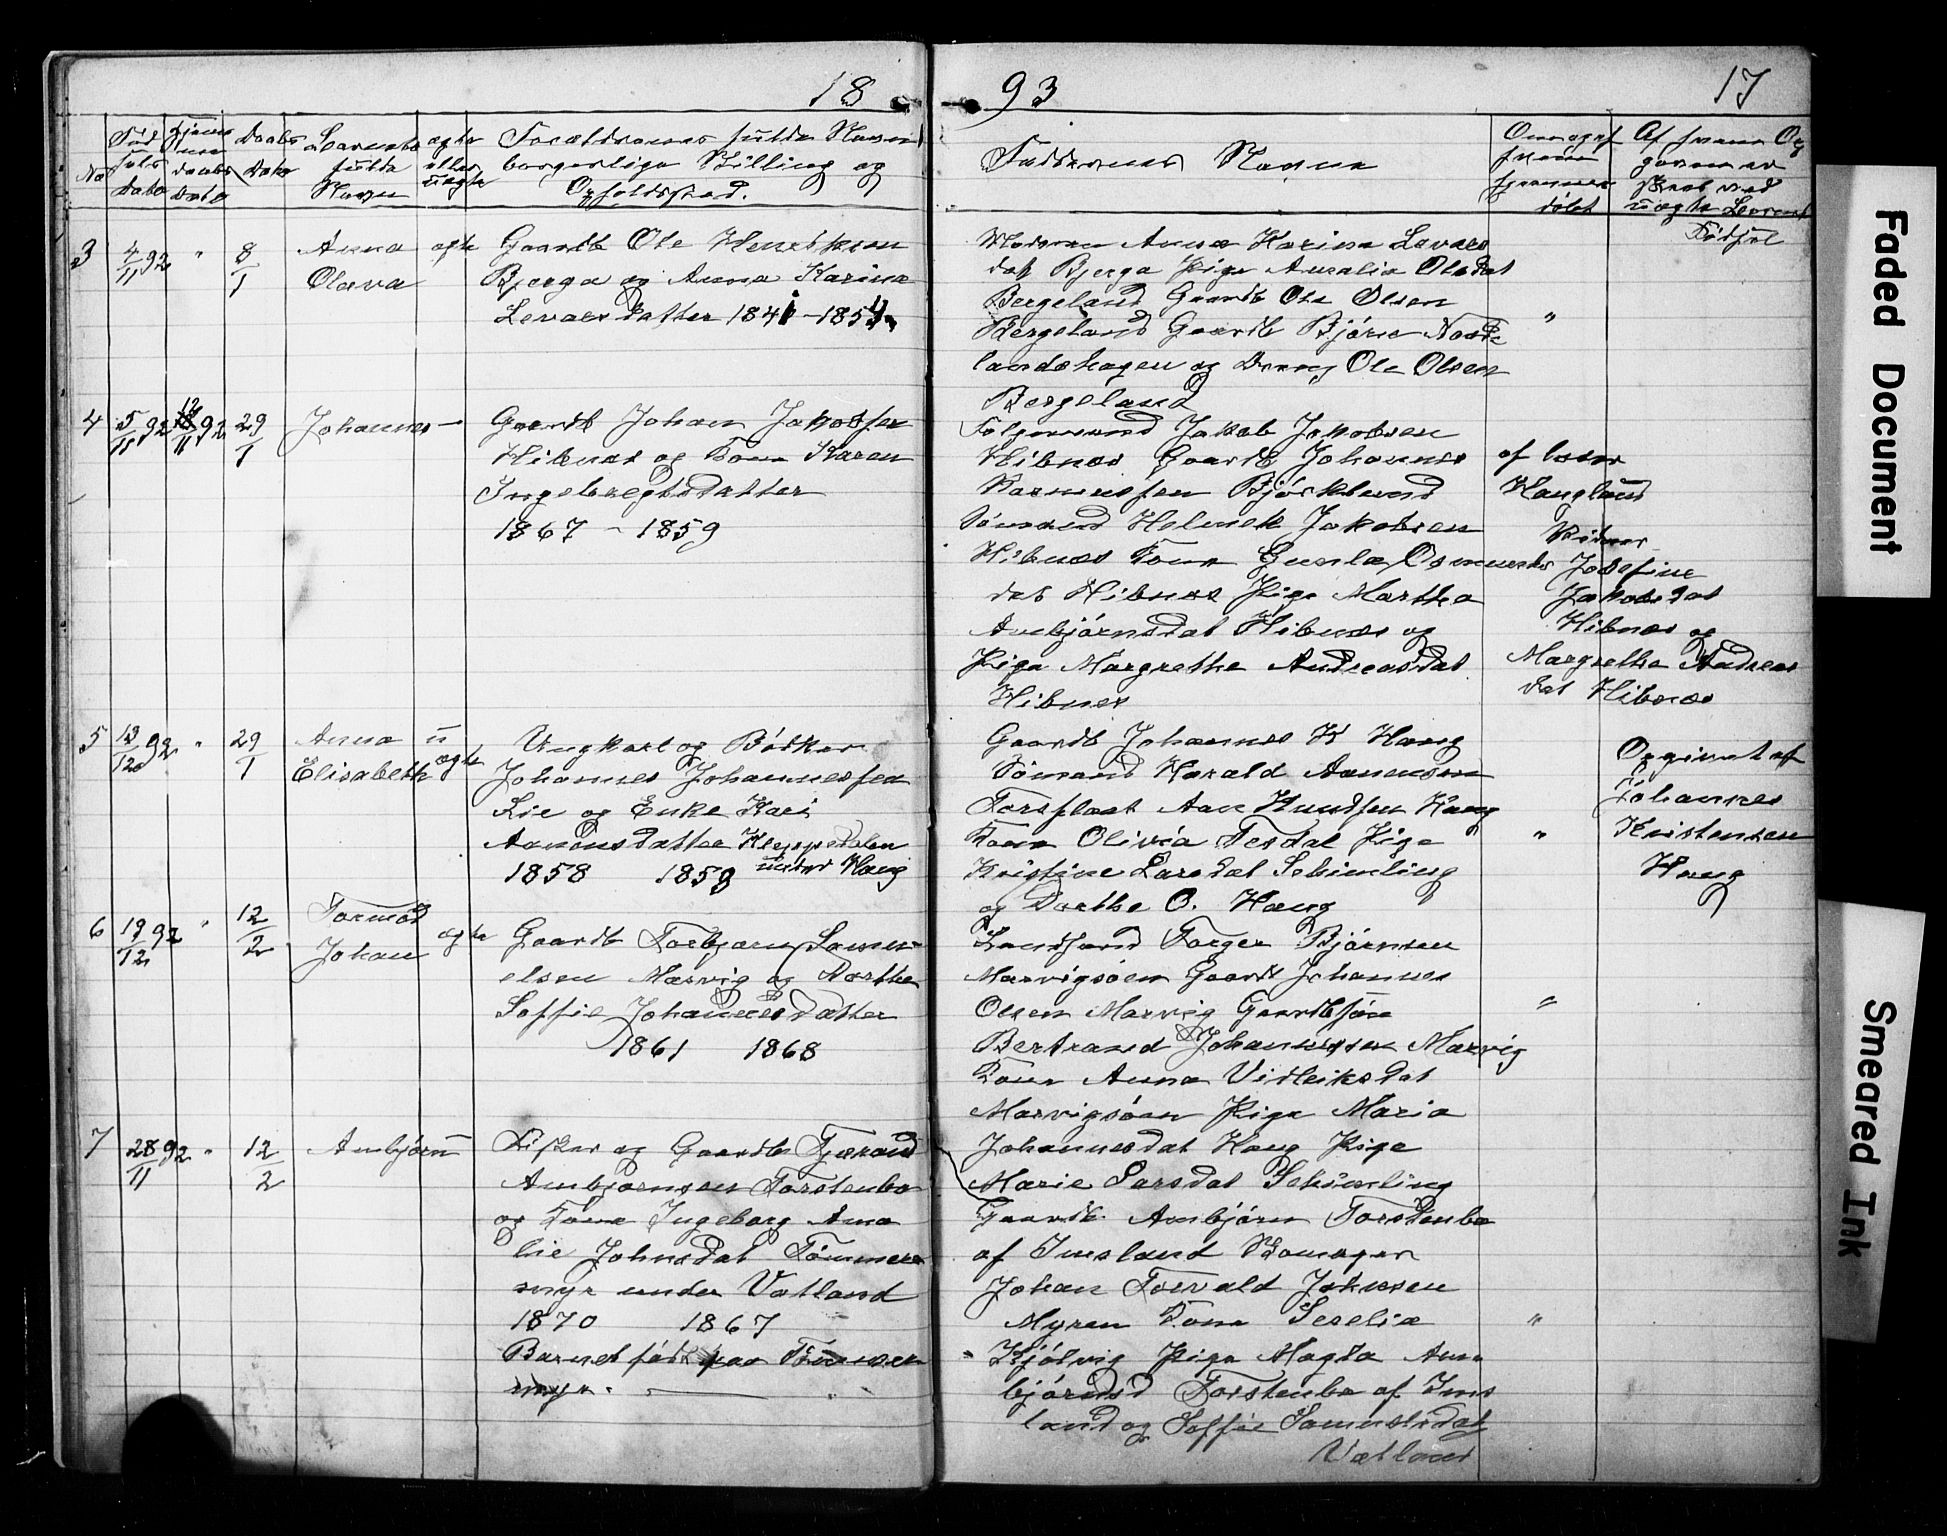 18 93 17
No
Fød
sels
Dato
Hjemme
daabs
Dato
Daabs
Dato
Barnets
fulde
Navn
ægte
eller
uægte
Forældrenes fulde Navn
borgerlige Stilling og
Opholdssted.
Faddernes Navne
Om og af
hvem
hjemme
døbt
Af hvem Op
gaven er
skeet ved
uægte Børns
Fødsel
3 4/11 92 " 8/1 Anna
Olava
ægte
Gaardb Ole Henriksen
Bjerga og Anna Karina
Levaersdatter 1841 - 1851
Moderen Anna Karina Levaers
dat Bjerga Pige Auralia Olsdat
Bergeland Gaardb Ole Olsen
Bergeland Gaardb Bjørn
landshagen og Dreng Ole Olsen
Bergeland
"
4 5/11 92 12/11 92 29/1 Johannes –
Gaardb Johan Jakobsen
Hibnes og Kone Karen
Ingebregtsdatter
1867 - 1859
Følgemand Jakob Jakobsen
Hibnæs Gaardb Johannes
Rasmussen Bjørklund
Sømand Helmek Jakobsen
Hibnæs Kone Gunla Osmunds
dat Hibnæs Pige Martha
Ambjørnsdat Hibnæs og
Pige Margrethe Andreasdat
Hibnes
af Lærer
Haugland
Vidner
Josefine
Jakobsdat
Hibnæs og
Margrethe Andreas
dat Hibnæs
5 13/12 92 " 29/1 Anna
Elisabeth
u
ægte
Ungkarl og Bødker
Johannes Johannessen
Lie og Enke Kari
Aanensdatter Kleppedalen
under Haug
1858 1859
Gaardb Johannes K Haug
Sømand Harald Aanensen
Torsflaat Aan Knudsen Haug
Kone Olivia Tesdal Pige
Kristine Larsdat Schimling
og Dorthe O. Haug
"
Opgivet af
Johannes
Kristensen
Haug
6 19/12 92 " 12/2 Tormod
Johan
ægte
Gaardb Torbjørn Samu-
elsen Marvig og Dorthe
Soffie Johannesdatter
1861 1868
Landhand Torger Bjørnsen
Marvigsøen Gaardb Johannes
Olsen Marvig Gaardbsøn
Bertrand Johannessen Marvig
Kone Anna Vidleiksdat
Marvigsøen Pige Maria
Johannesdat Haug Pige
Marie Larsdat Schimling
"
7 28/11 92 " 12/2 Ambjørn –
Fisker og Gaardb Tjerand
Ambjørnsen Torstenbo
og Kone Ingeborg Ama
lie Johnsdat Tømmer
myr under Vatland
1870 1867
Barnet født paa Tømmer
myr.
Gaardb Ambjørn Torstenbo
af Imsland Skomager
Johan Torvald Johnsen
Myren Kone Serelia
Kjølvig Pige Magta Am
bjørnsd Torstenbo af Ims
land og Soffie Samuelsdat
Vatland
"
Faded Document
Smeared Ink